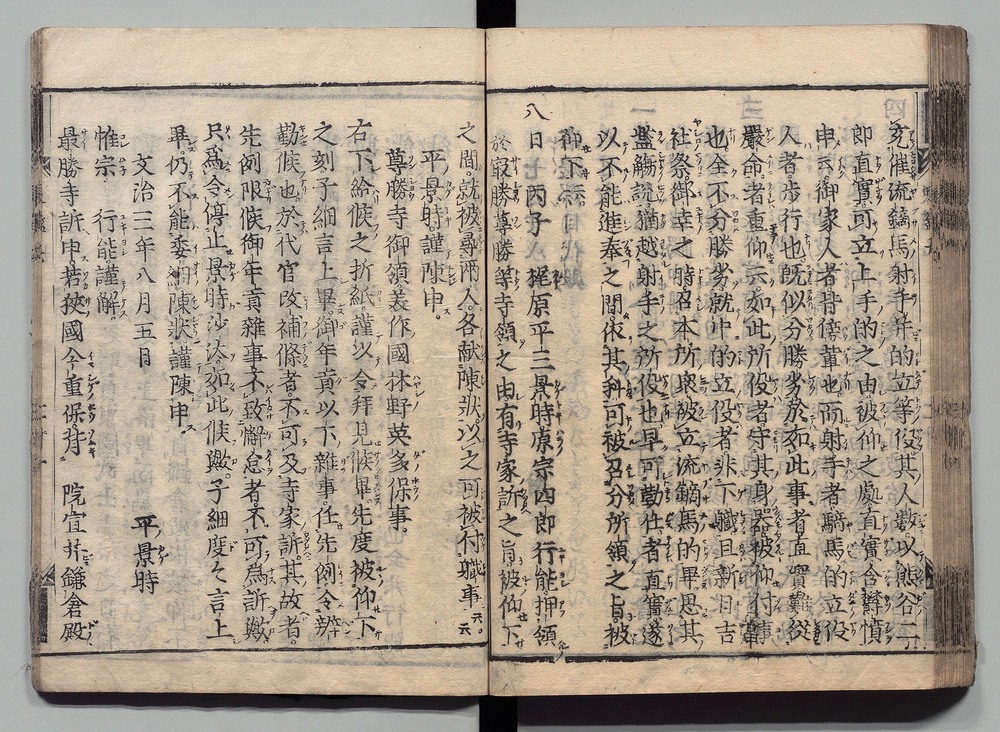 充催流鏑馬射手并的立等役其人数以熊谷二
即直實可立上手的之由被仰之處直實含欝憤
申云御家人者皆傍輩也而射手者騎馬的立役
人者歩行也既似分勝劣於如此事者直實難従
嚴命者重仰云如此所役者守其身器被仰付
也全不分勝劣就中的立役者非下職且新日吉
社祭御幸之時召本所衆被立流鏑馬的畢思其
濫觴説猶越射手之所役也早可勤仕者直實遂
以不能進奉之間依其科可被召分所領之旨被
仰下云
八日丙子梶原平三景時原宗四郎行能押領
於最勝尊勝等寺領之由有寺家訴之旨被仰下
之間就被尋兩人各献陳狀以之可被付職事云云
平景時謹陳申
尊勝寺御領美作國林野英多保事
右下給候之折紙謹以令拜見候畢先度被仰下
之刻子細言上畢御年貢以下雜事任先例令辨
勤候也於代官改補條者不可及寺家訴其故者
先例限候御年貢雜事不致懈怠者不可為訴歟
只為令停止景時沙汰如此候歟子細度々言上
畢仍不能委細陳狀謹陳申
文治三年八月五日 平景時
惟宗 行能謹解
最勝寺訴申若狹國今重保背 院宣并鎌倉殿